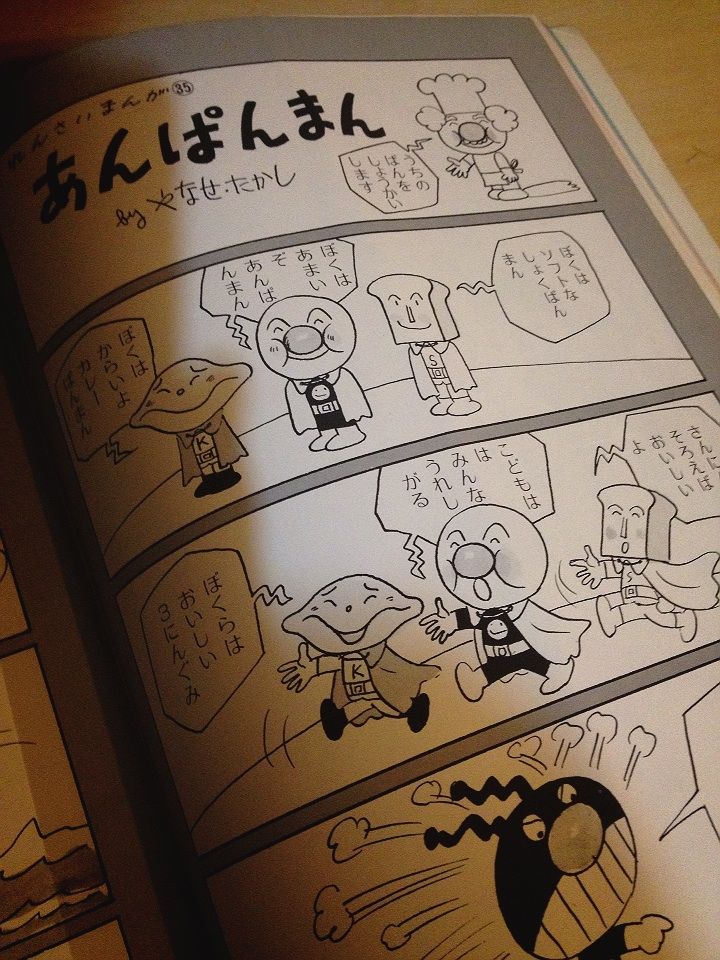 れんさいまんが㉟
あんぱんまん
by やなせ・たかし
うちの
ぱんを
しょうかい
します
ぼくは
ソフトな
しょくぱん
まん
ぼくは
あまい
ぞ
あんぱ
んまん
ぼくは
からいよ
カレー
ぱんまん
S
K
さんに
そろえば
おいしい
よ
こどもは
みんな
うれし
がる
ぼくらは
おいしい
3にんぐみ
S
K